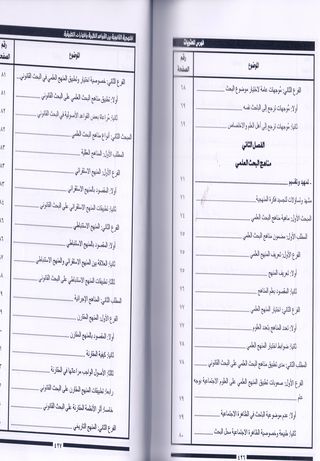 فهرس المحتويات
الموضوع
رقم
الصفحة
الفرع الثاني: موجهات عامة لاختيار موضوع البحث
٦٨
أولا: موجهات ترجع إلى الباحث نفسه
٦٩
ثانيا: موجهات ترجع إلى أهل العلم والاختصاص
٦٩
الفصل الثاني
مناهج البحث العلمي
تمهيد وتقسيم
٧١
مشهد وتساؤلات لتجسيد فكرة المنهجية
المبحث الأول: ماهية مناهج البحث العلمي
المطلب الأول: مضمون مناهج البحث العلمي
الفرع الأول: تعريف المنهج العلمي
أولا: تعريف المنهج
ثانيا: المقصود بعلم المناهج
الفرع الثاني: اختيار المنهج العلمي
أولا: تعدد المناهج بتعدد العلوم
ثانيا: ضوابط اختيار المنهج العلمي
المطلب الثاني: مدى تطبيق مناهج البحث العلمي على البحث القانوني
الفرع الأول: صعوبات تطبيق المنهج العلمي على العلوم الاجتماعية بوجه
عام
أولا: عدم موضوعية الباحث في الظاهرة الاجتماعية
٧٩
ثانيا: طبيعة وخصوصية الظاهرة الاجتماعية محل البحث
٨٠
٤٢٦
المنهجية القانونية بين القواعد النظرية والمهارات التطبيقية
الموضوع
رقم
الصفحة
الفرع الثاني: خصوصية اختيار وتطبيق المنهج العلمي في البحث القانوني
٨١
أولا: تطبيق مناهج البحث العلمي على البحث القانوني
ثانيا: مراعاة بعض القواعد الأصولية في البحث القانوني
المبحث الثاني: أنواع مناهج البحث العلمي
المطلب الأول: المناهج العقلية
الفرع الأول: المنهج الاستقرائي
أولا: المقصود بالمنهج الاستقرائي
ثانيا: تطبيقات المنهج الاستقرائي على البحث القانوني
الفرع الثاني: المنهج الاستنباطي
أولا: المقصود بالمنهج الاستنباطي
ثانيا: العلاقة بين المنهج الاستقرائي والمنهج الاستنباطي
ثالثا: تطبيقات المنهج الاستنباطي على البحث القانوني
المطلب الثاني: المناهج الإجرائية
الفرع الأول: المنهج المقارن
أولا: المقصود بالمنهج المقارن
ثانيا: كيفية المقارنة
ثالثا: الأصول الواجب مراعاتها في المقارنة
رابعا: تطبيقات المنهج المقارن على البحث القانوني
خامسا: أثر الأنظمة المقارنة على البحث القانوني
الفرع الثاني: المنهج التاريخي
٤٢٧